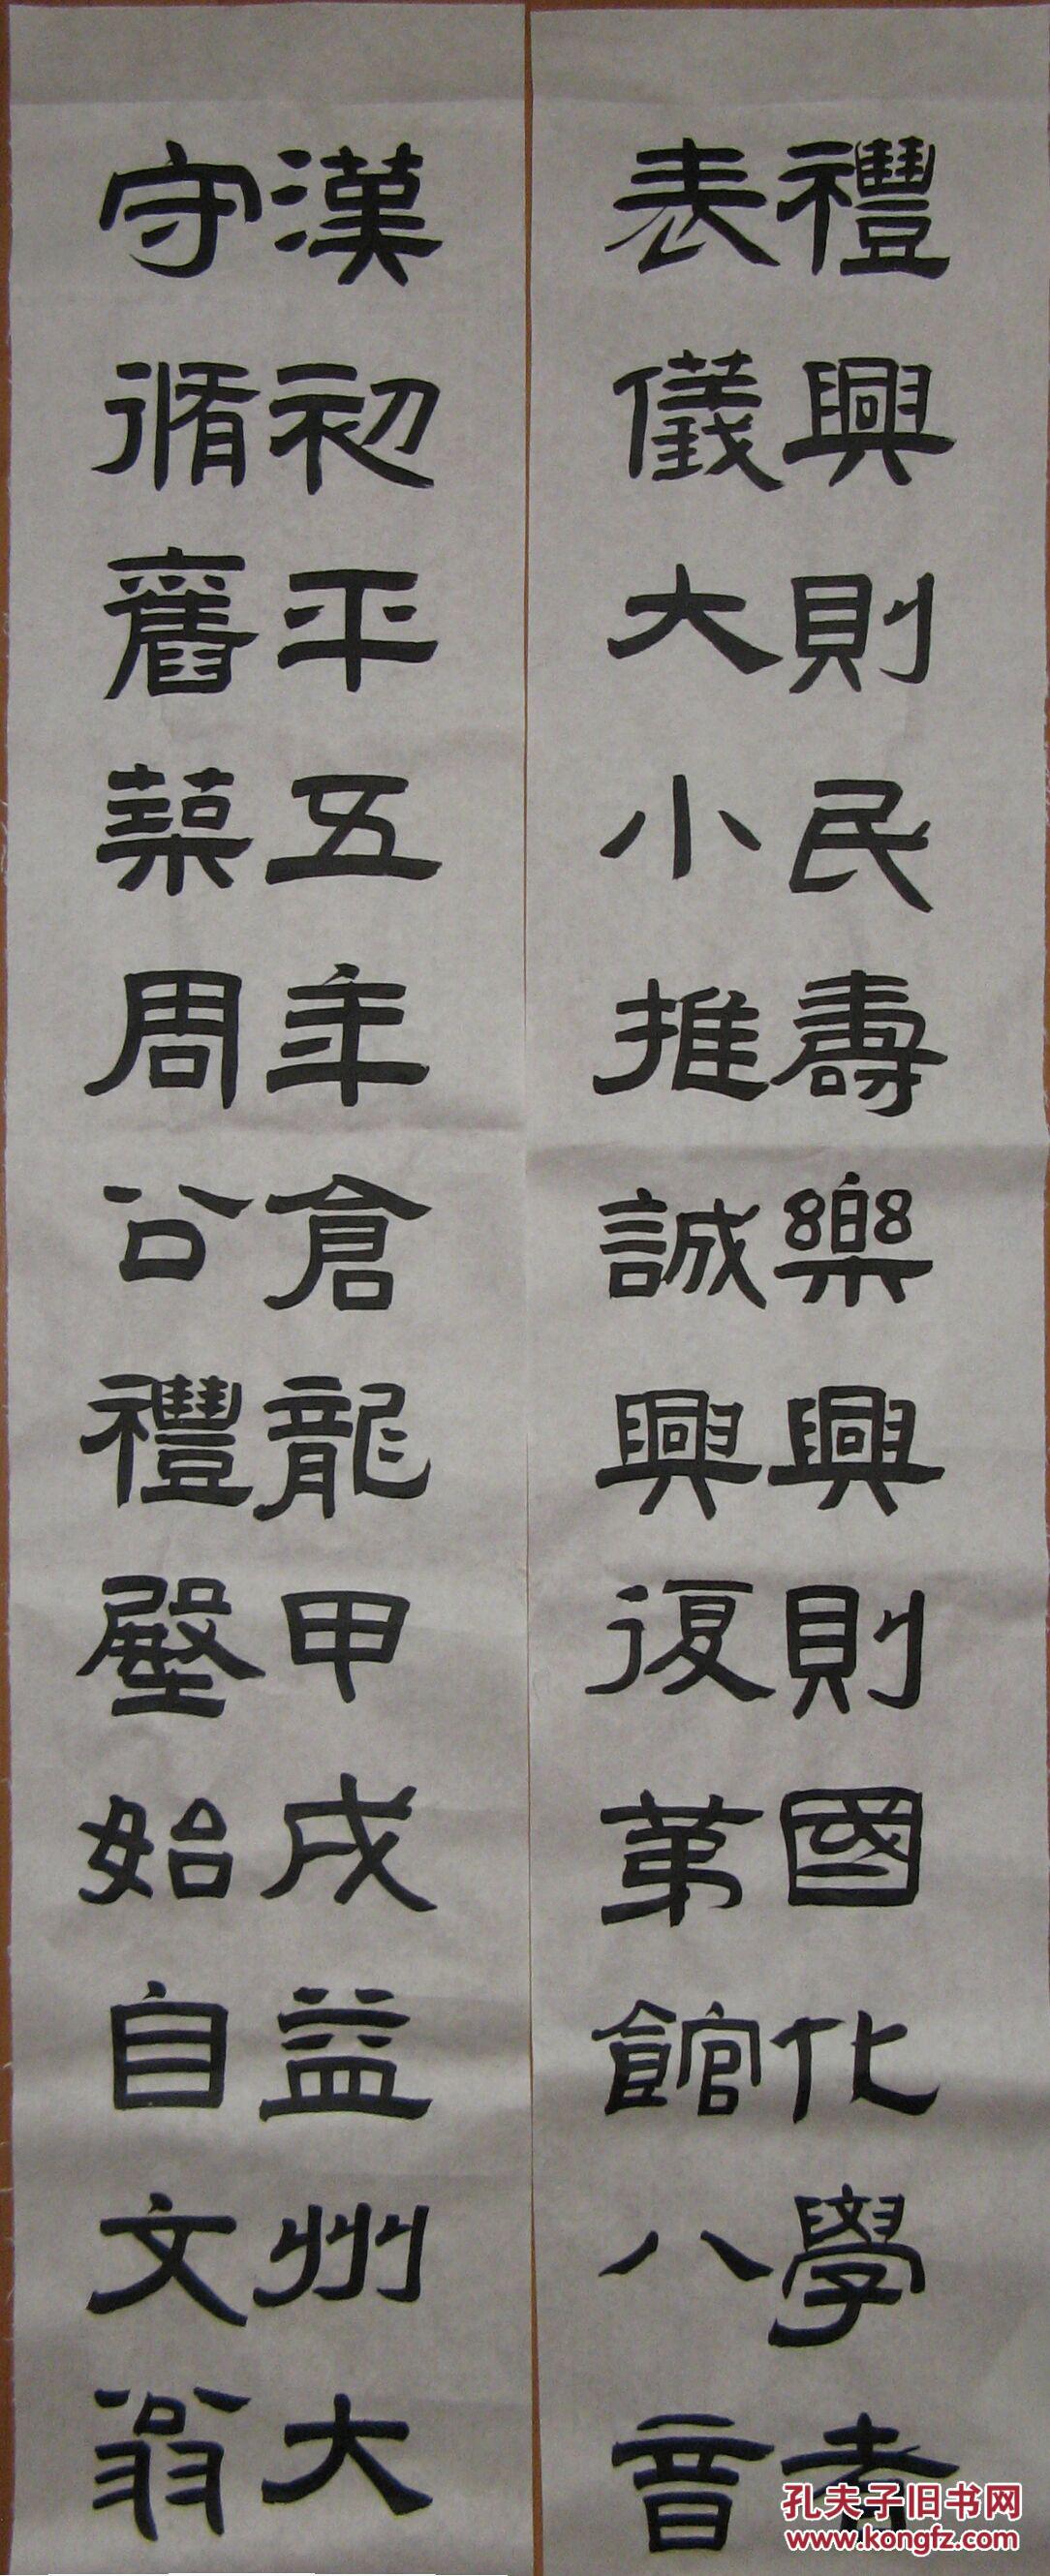 禮興則民壽樂興則國化學者
表儀大小推誠興復第館八音
漢初平五年倉龍甲戌益州大
守循舊築周公禮壂始自文翁
孔夫子旧书网
www.kongfz.com